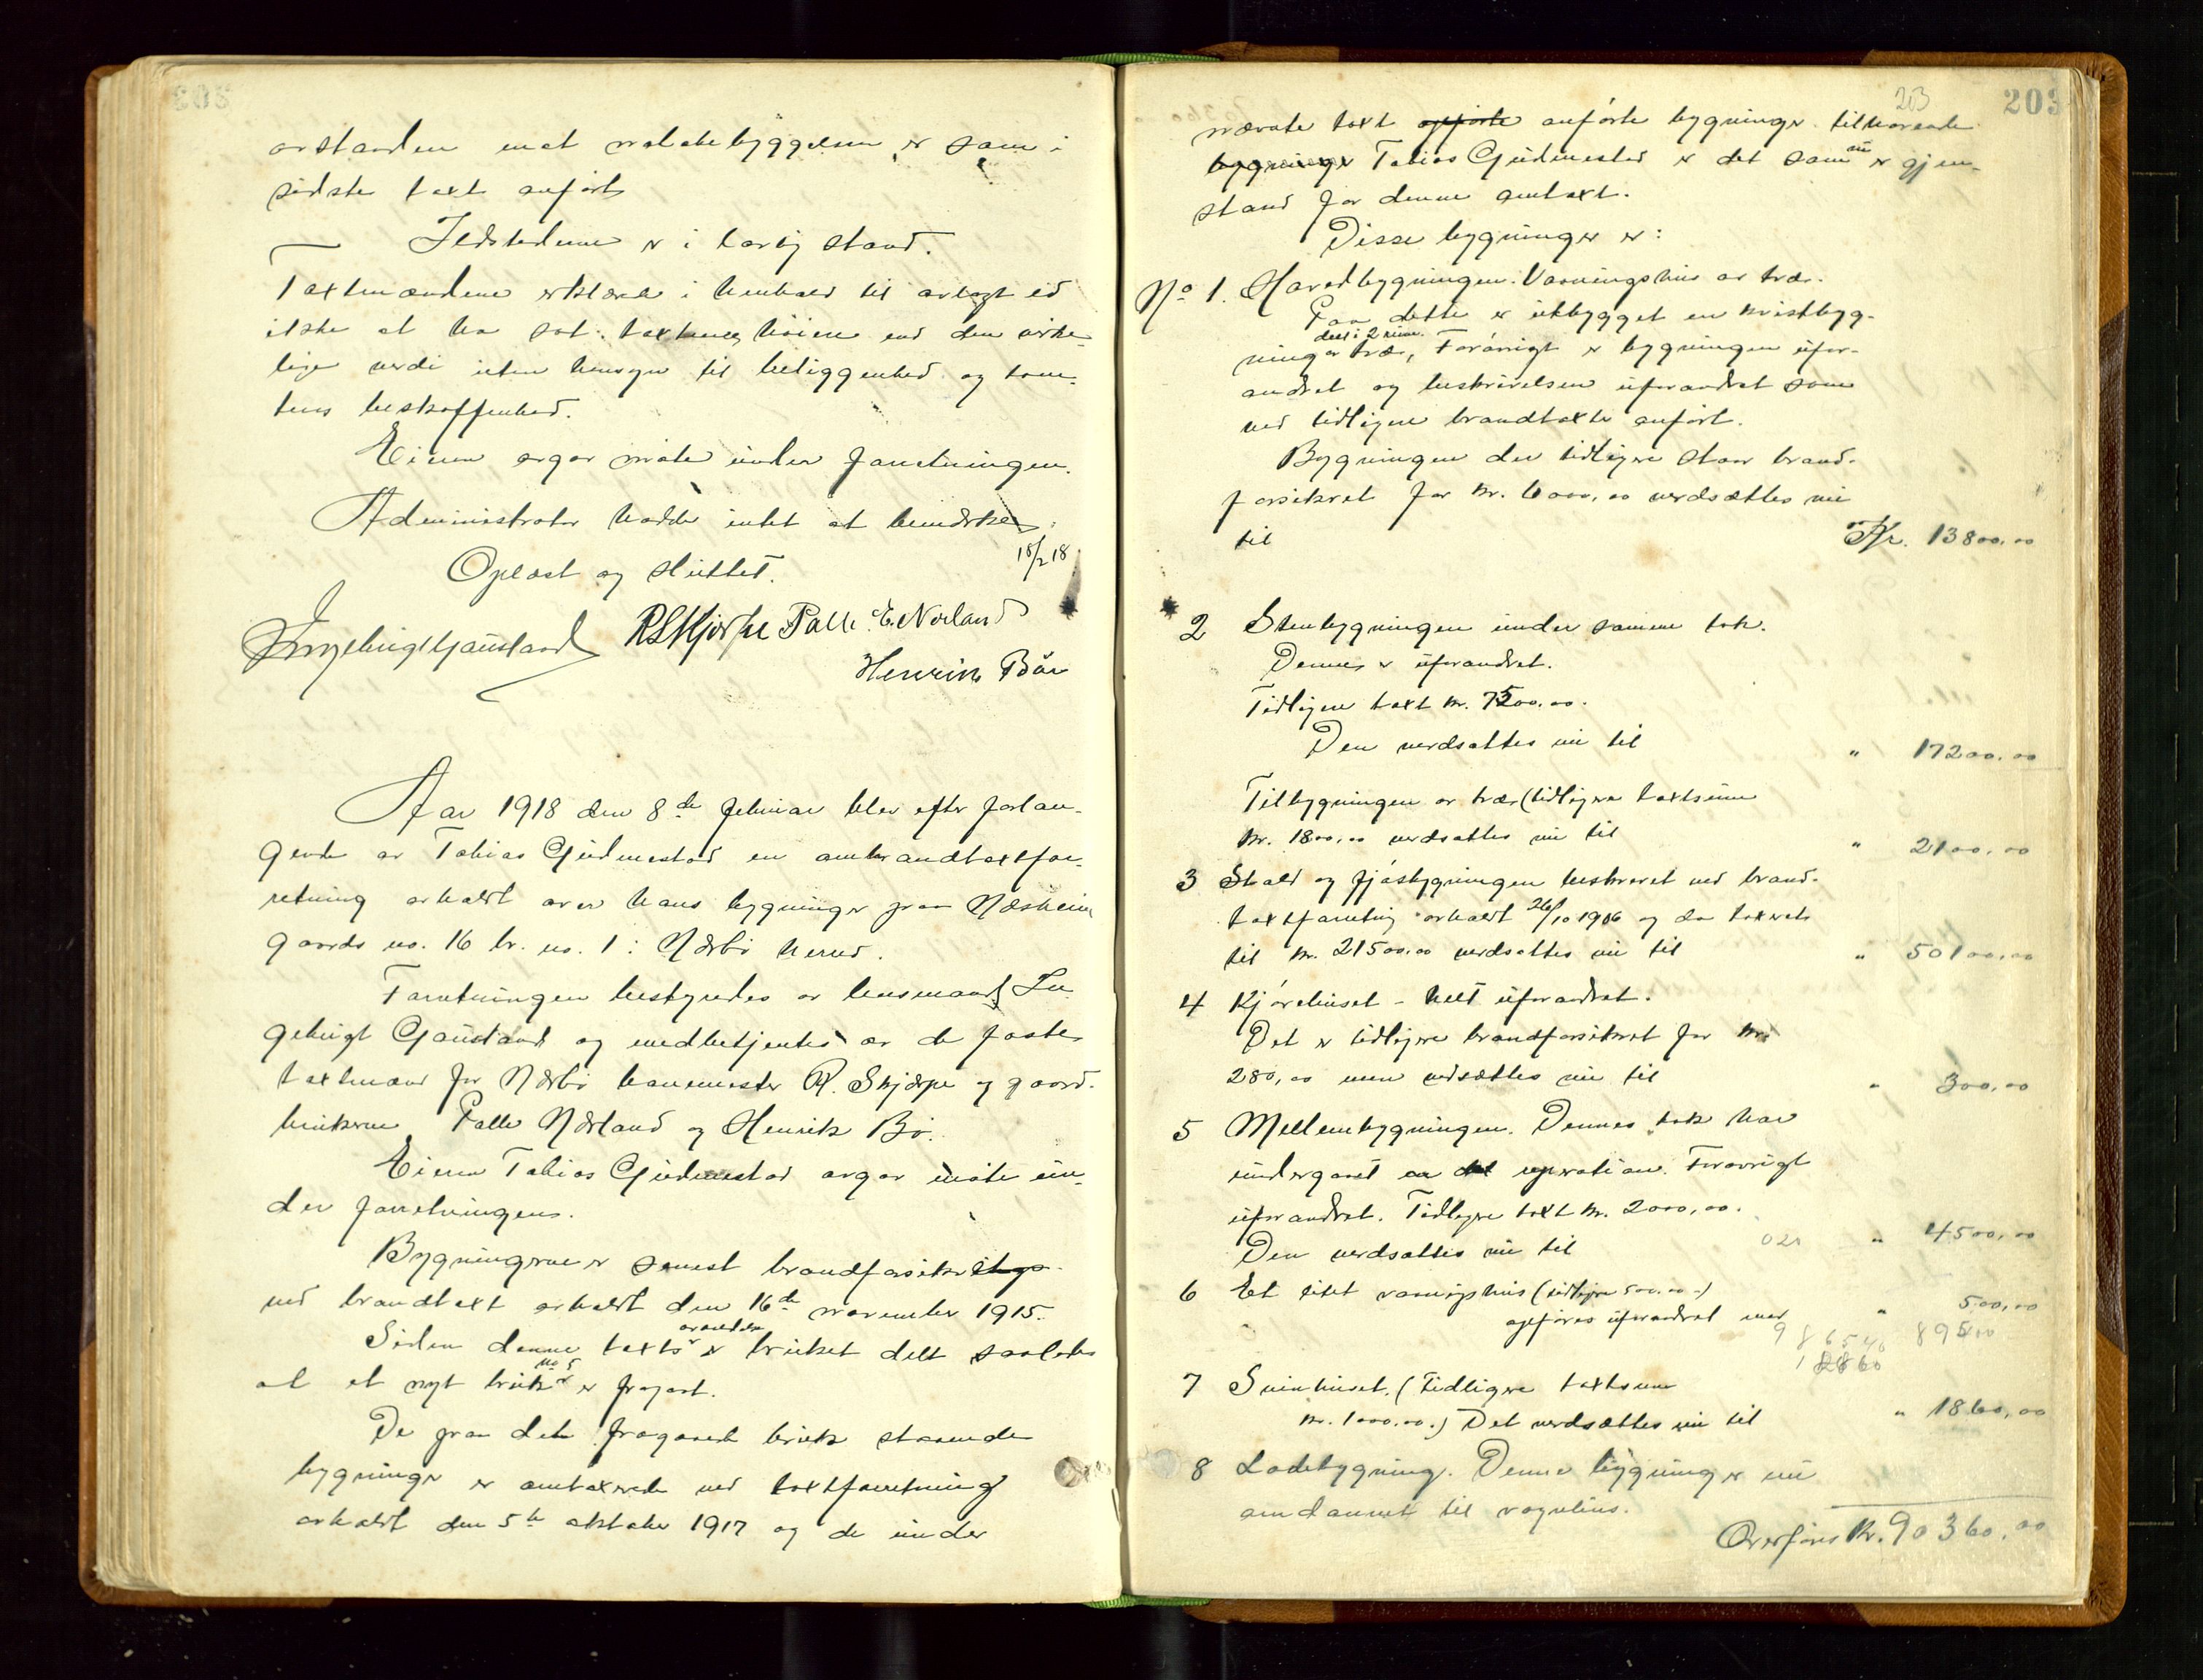 avstanden mot nabobebyggelsen er som i
sidste takt anført.
Ildstederne er i lovlig stand.
Taxtmændene erklærede i henhold til avlagt ed
ikke at ha sat taxterne høiere end den virke-
lige verdi uten hensyn til beliggenhed og tom-
tens beskaffenhed.
Eieren avgav møte under forretningen.
Administrator hadde intet at bemerke.
Oplæst og sluttet. 18/2 18
Ingebrigt Gausland RSkjørpe Palle E. Nærland
Henrik Bøe
Aar 1918 den 8de februar blev efter forlan-
gende av Tobias Gudmestad en ombrandtaxtfor-
retning avholdt over hans bygninger paa Næsheim
gaards no. 16 br. no. 1 i Nærbø herred.
Forretningen bestyredes av lensmand In-
gebrigt Gausland og medbetjentes av de faste
taxtmænd for Nærbø banemester R. Skjærpe og gaard-
brukerne Palle Nærland og Henrik Bø.
Eieren Tobias Gudmestad avgav møte un-
der forretningen.
Bygningerne er senest brandforsikret
ved brandtaxt avholdt den 16de november 1915.
Siden denne taxts avholdelse er bruket delt saaledes
at et nyt bruk no 5 er fragaat.
De paa det fragaaede bruk staaende
bygninger er omtaxerede ved taxtforretning
avholdt den 5te oktober 1917 og de under
203 203
nævnte taxt opførte anførte bygninger tilhørende
bygninger Tobias Gudmestad er det som nu er gjen-
stand for denne omtaxt.
Disse bygninger er:
No 1. Hovedbygningen. Vaaningshus av træ.
Paa dette er utbygget en kvistbyg-
ning av træ, delt i 2 rum. Forøvrigt er bygningen ufor-
andret og beskrivelsen uforandret som
ved tidligere brandtaxter anført.
Bygningen der tidligere staar brand-
forsikret for kr. 6000,00 verdsættes nu
til Kr. 13800,00
2 Stenbygningen under samme tak.
Dennes er uforandret.
Tidligere taxt kr. 7500,00.
Den verdsættes nu til " 17200,00
Tilbygningen av træ (tidligere taxtsum
kr. 1800,00 verdsættes nu til " 2100,00
3 Stald og fjøsbygningen beskrevet ved brand-
taxtforretning avholdt 26/10 1906 og da taxeret
til kr. 21500,00 verdsættes nu til " 50100,00
4 Kjørehuset - helt uforandret.
Det er tidligere brandforsikret for kr.
280,00 men verdsættes nu til " 300,00
5 Mellembygningen. Dennes tak har
undergaaet en del reparation. Forøvrigt
uforandret. Tidligere taxt kr. 2000,00.
Den verdsættes nu til " 4500,00
6 Et litet vaaningshus (tidligere 500.00-)
opføres uforandret med " 500,00
7 Svinehuset. (Tidligere taxtsum
kr. 1000.00.) Det verdsættes nu til " 1860,00
8 Ladebygning. Denne bygning er nu
omdannet til vognhus.
Overføres Kr. 90360.00